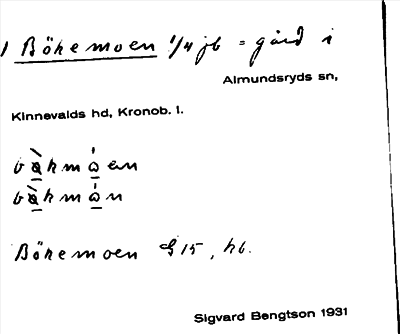 1 Bökemoen 1/4 jb = gård i
Almundsryds sn,
Kinnevalds hd, Kronob. l.
Bökemoen G 15, hb.
Sigvard Bengtson 1931